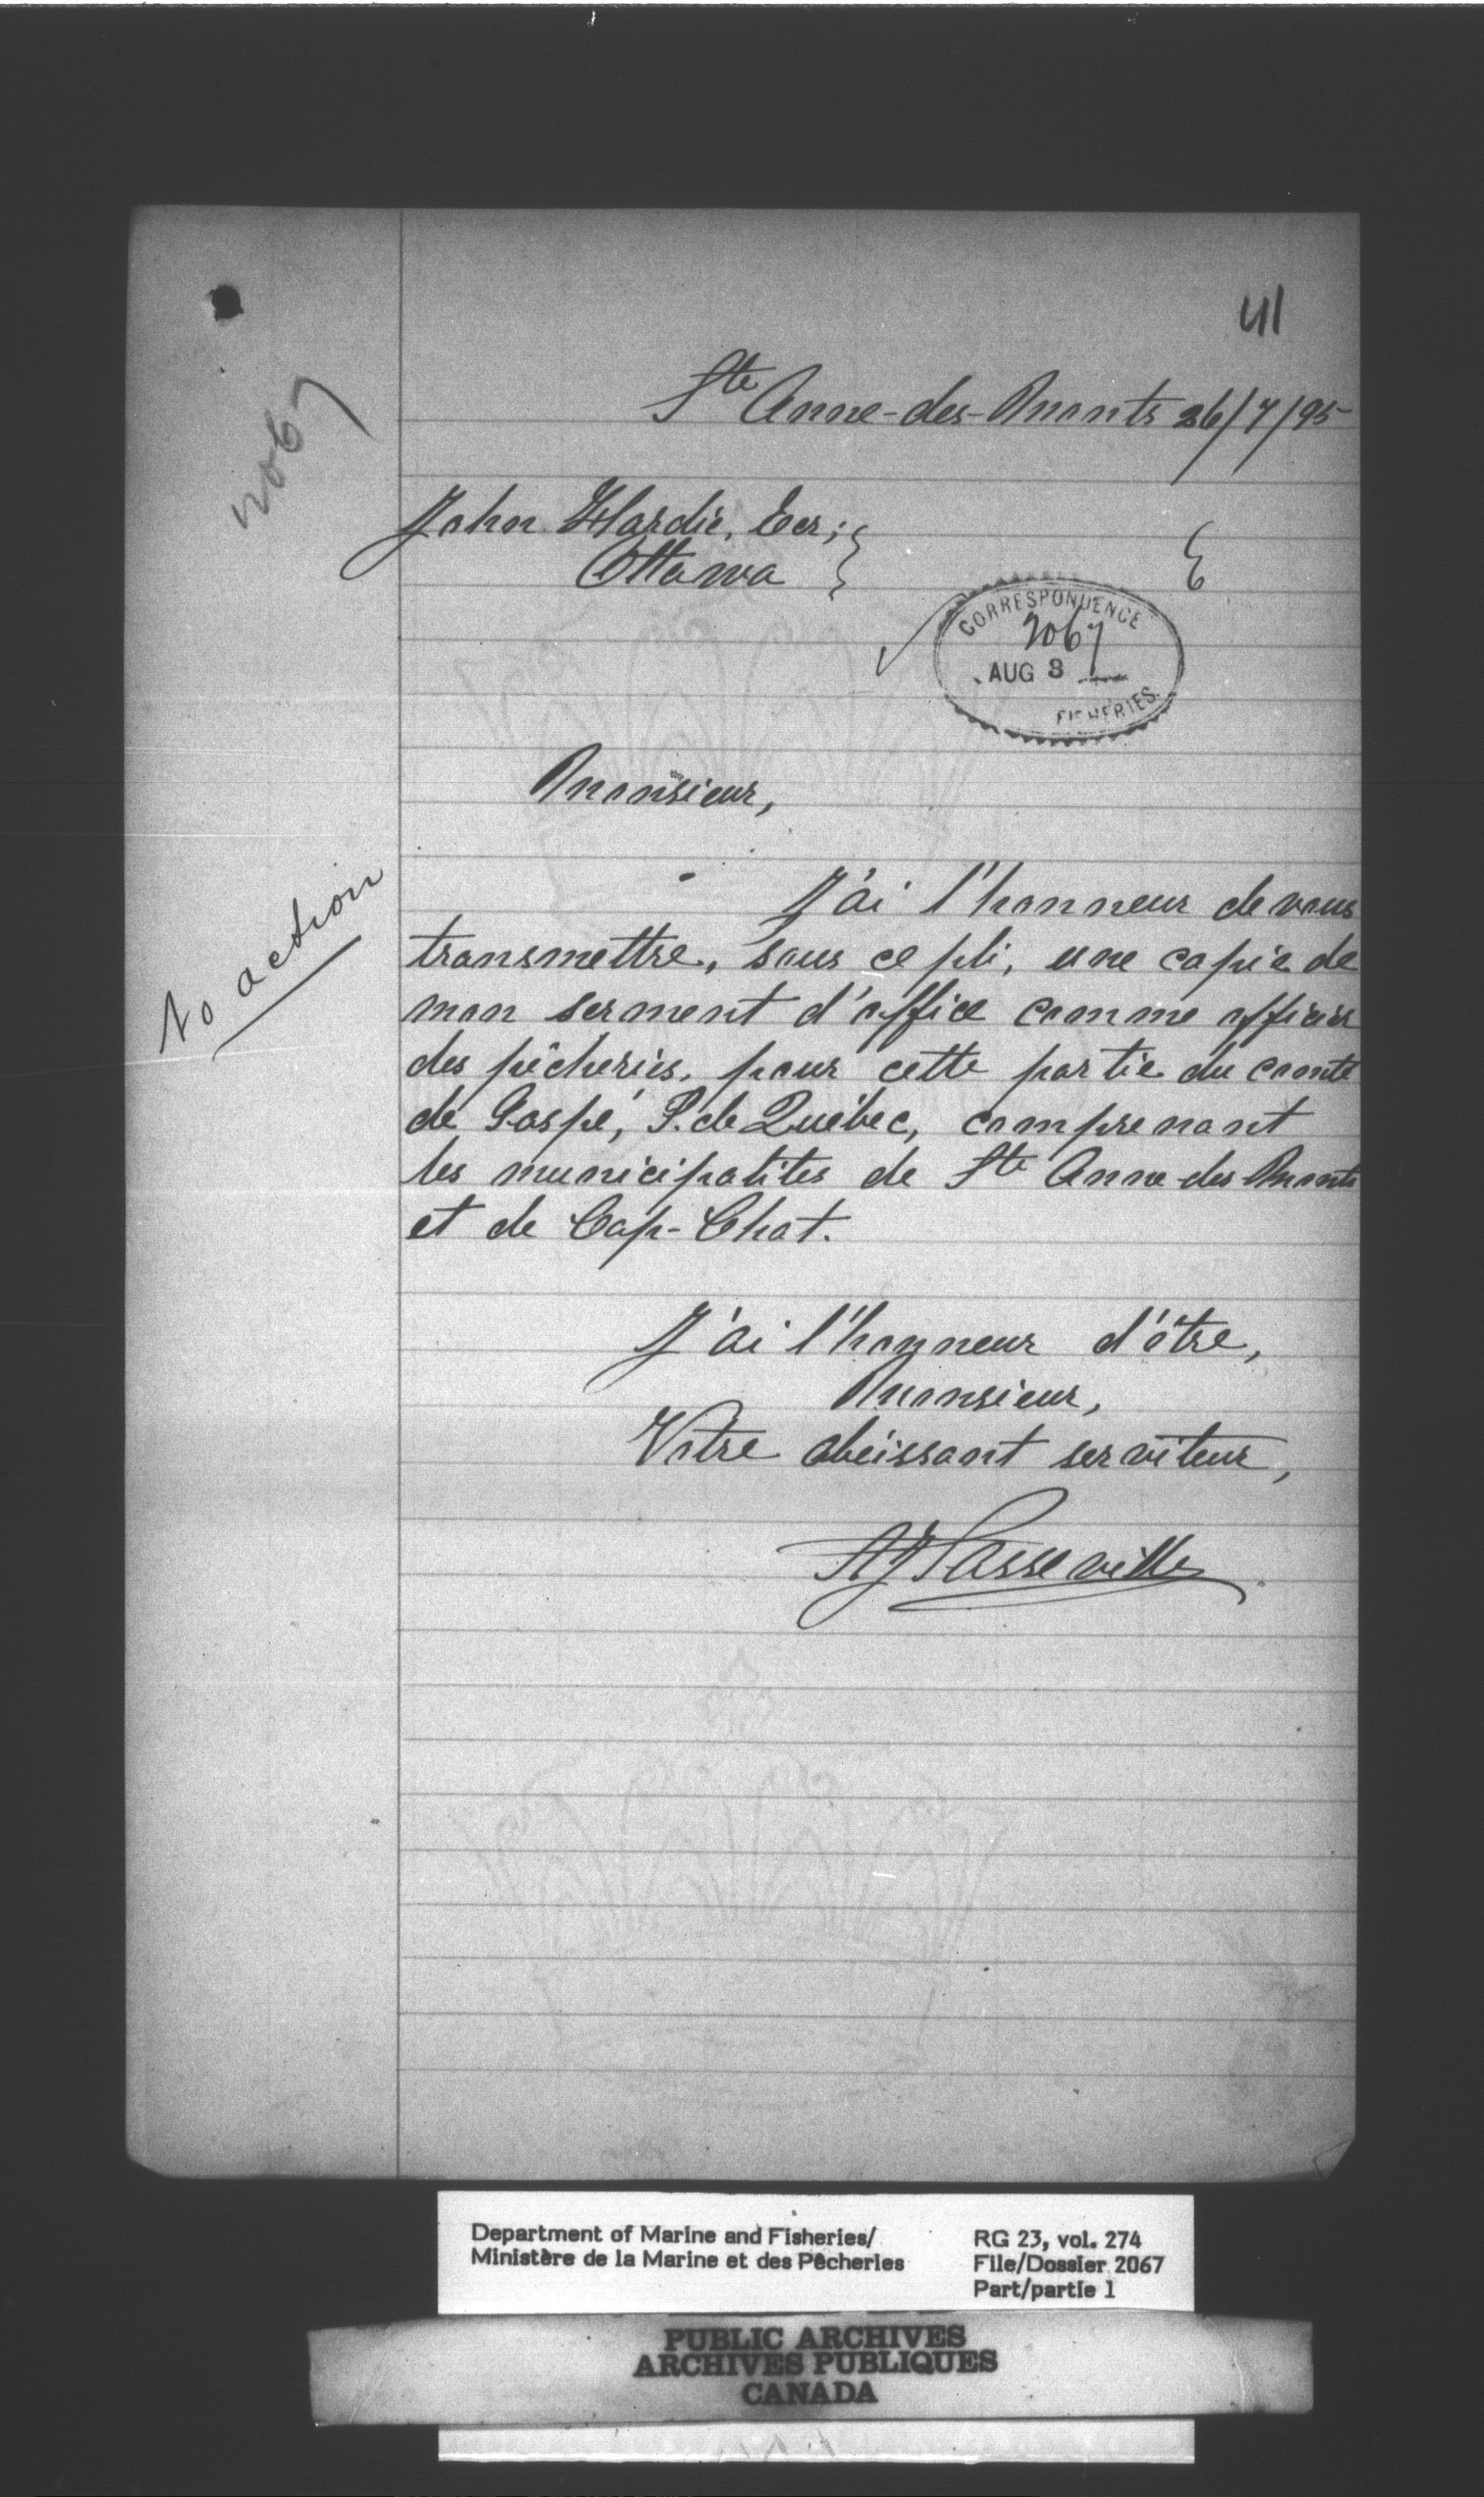 41
Ste Anne-des-Monts 26/7/95
2067
John Hardie, Ecr;
Ottawa
CORRESPONDENCE
2067
AUG 3
FISHERIES.
Monsieur,
J'ai l'honneur de vous
transmettre, sous ce pli, une copie de
mon serment d'office comme officier
des pêcheries, pour cette partie du comté
de Gaspé, P. de Québec, comprenant
les municipalités de Ste Anne des Monts
et de Cap-Chat.
No action
J'ai l'honneur d'être,
Monsieur,
Votre obéissant serviteur,
AJ Vasseville
Department of Marine and Fisheries/
Ministère de la Marine et des Pêcheries
RG 23, vol. 274
File/Dossier 2067
Part/partie 1
PUBLIC ARCHIVES
ARCHIVES PUBLIQUES
CANADA